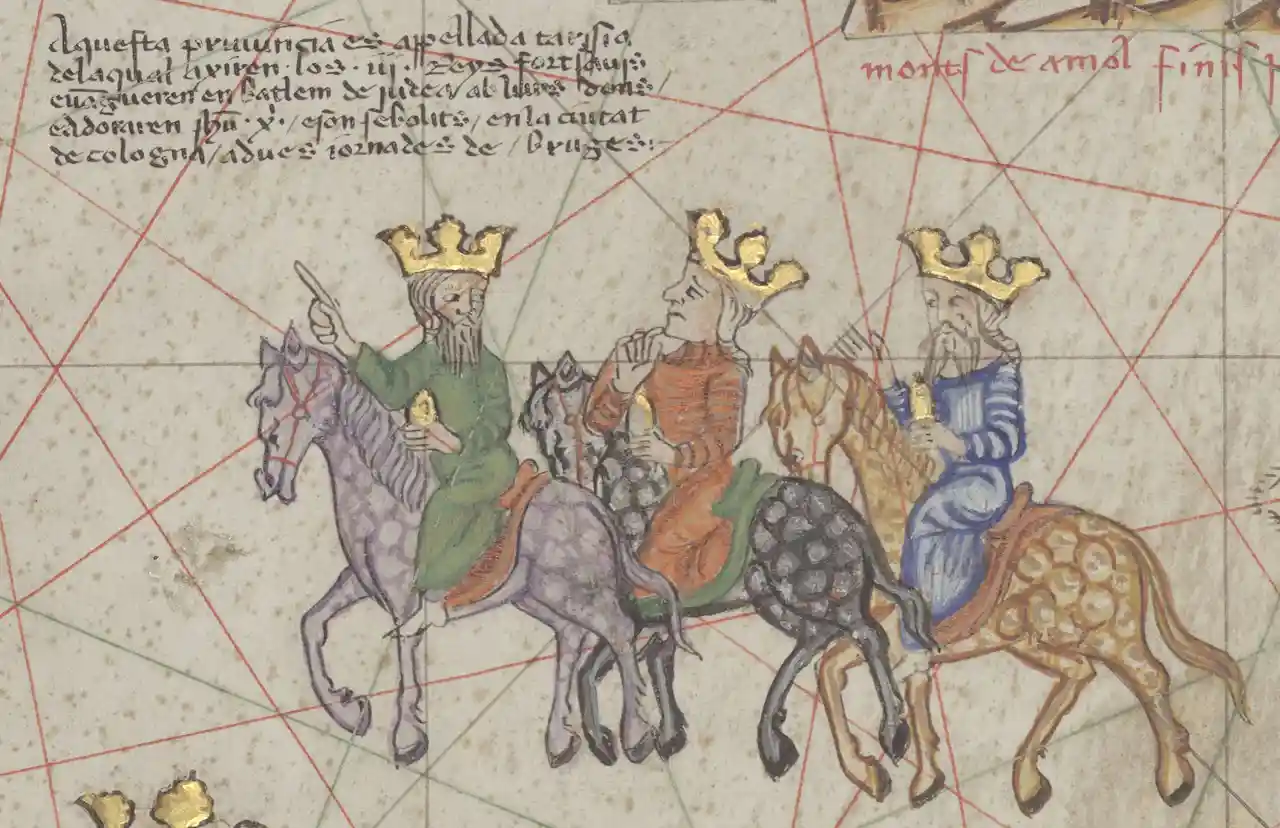 Aquesta prouincia es apellada tarssia
de la qual axiren los iij Reys fort sauis
e uāgueren en batlem de judea ab lurs dons
e adoraren jhū xꝰ e son sebolits en la ciutat
de cologna a dues iornades de bruges
monts de amol finis